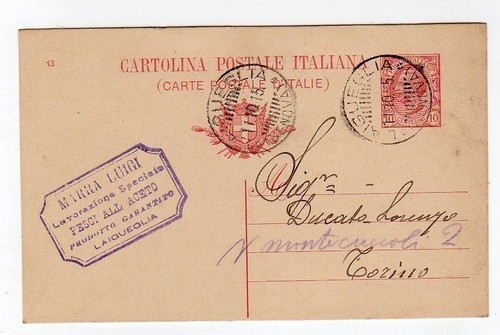 13
CARTOLINA POSTALE ITALIANA
(CARTE POSTALE D'ITALIE)
LAIGUEGLIA
LAIGUEGLIA
10 10
MARRA LUIGI
Lavorazione Speciale
PESCI ALL ACETO
PRODOTTO GARANTITO
LAIGUEGLIA
Sigr
Ducato Lorenzo
V montecuccoli 2
Torino